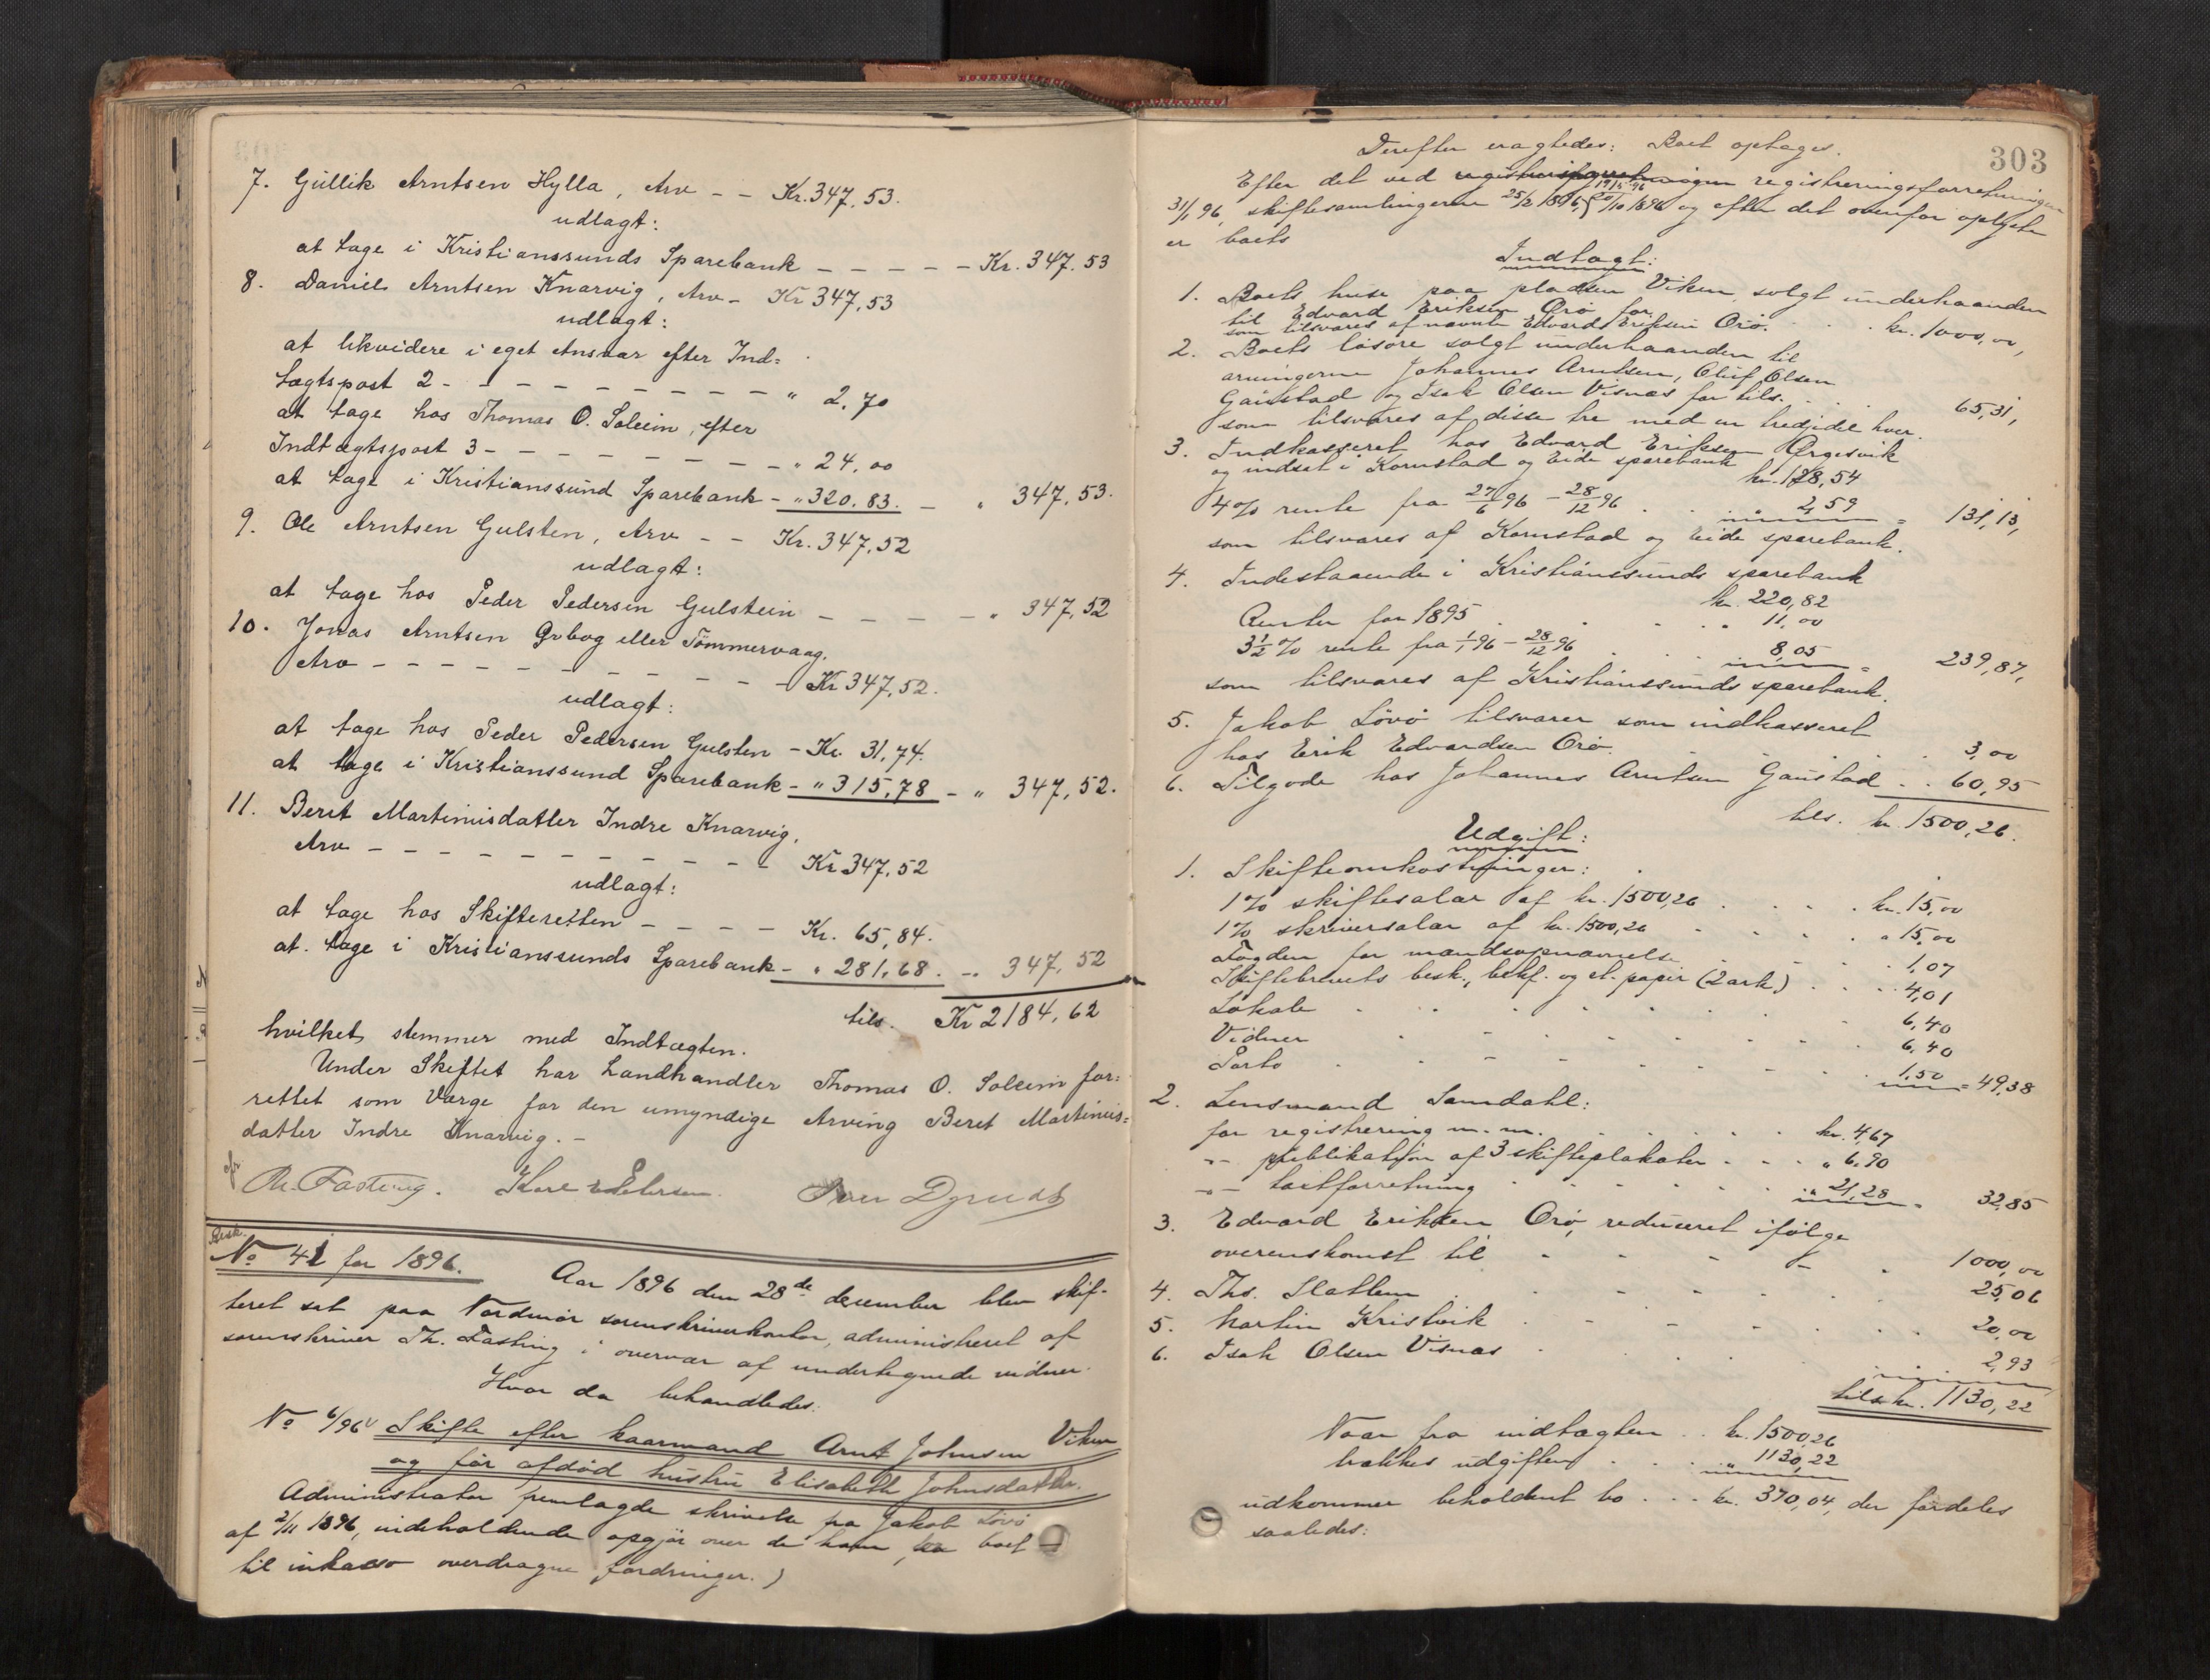 7. Gullik Arntsen Hylla, Arv - - Kr. 347,53.
udlagt:
at tage i Kristianssunds Sparebank - - - - - Kr. 347.53
8. Daniel Arntsen Knarvig, Arv - Kr 347,53
udlagt:
at likvidere i eget Ansvar efter Ind=
tægtspost 2 - - - - - - - - - - " 2,70
at tage hos Thomas O. Soleim, efter
Indtægtspost 3 - - - - - - - - - " 24,00
at tage i Kristianssund Sparebank - " 320.83. - " 347,53.
9. Ole Arntsen Gulsten, Arv - - Kr. 347,52
udlagt:
at tage hos Peder Pedersen Gulstein - - - - - " 347,52
10. Jonas Arntsen Grbog eller Tömmervaag,
Arv - - - - - - - - - - - Kr 347,52.
udlagt:
at tage hos Peder Pedersen Gulsten - Kr. 31,74.
at tage i Kristianssund Sparebank - " 315,78 - " 347,52.
11. Beret Martinusdatter Indre Knarvig,
Arv - - - - - - - - - - - Kr 347,52
udlagt:
at tage hos Skifteretten - - - - Kr. 65,84.
at tage i Kristianssunds Sparebank - " 281,68. - " 347,52
tils. Kr 2184,62
hvilket stemmer med Indtægten.
Under Skiftet har Landhandler Thomas O. Soleim for=
rettet som Værge for den umyndige Arving Beret Martinus=
datter Indre Knarvig. -
Th. Fasting. Karl Petersen.
Besk.
No 41 for 1896. Aar 1896 den 28de december blev skif-
teret sat paa Nordmör sorenskriverkontor, administreret af
sorenskriver Th. Fasting i overvær af undertegnede vidner.
Hvor da behandledes:
No 6/96 Skifte efter kaarmand Arnt Johnsen Viken
og för afdöd hustru Elisabeth Johnsdatter.
Administrator fremlagde skrivelse fra Jakob Lövö
af 2/11 1896, indeholdende opgjör over de ham fra boet
til inkasso overdragne fordringer.)
303
Derefter eragtedes: Boet optages.
Efter det ved registreringsforretningen
31/1 96, skiftesamlingerne 25/2 1896, 19/5 96 20/10 1896 og efter det ovenfor oplyste
er boets
Indtægt:
1. Boets huse paa pladsen Viken, solgt underhaanden
til Edvard Eriksen Orö for . . . kr. 1000,00,
som tilsvares af nævnte Edvard Eriksen Orö.
2. Boets lösöre solgt underhaanden til
arvingerne Johannes Arntsen, Oluf Olsen
Gaustad og Isak Olsen Visnæs for tils. . . . 65,31,
som tilsvares af disse tre med en tredjedel hver.
3. Indkasseret hos Edvard Eriksen Ørgesvik
og indsat i Kornstad og Eide sparebank kr. 128,54
4% rente fra 27/6 96 - 28/12 96 . . 2,59 = 131,13,
som tilsvares af Kornstad og Eide sparebank.
4. Indestaaende i Kristianssunds sparebank
kr. 220,82
Renter for 1895 . . . . . " 11,00
3 1/2 % rente fra 1/1 96 - 28/12 96 . . . 8,05 = 239,87,
som tilsvares af Kristianssunds sparebank.
5. Jakob Lövö tilsvarer som indkasseret
hos Erik Edvardsen Orö . . . . 3,00
6. Tilgode hos Johannes Arntsen Gaustad . . 60,95
tils. kr. 1500,26.
Udgift:
1. Skifteomkostninger:
1% skiftesalar af kr. 1500,26 . . . . kr. 15,00
1% skriversalar af kr. 1500,26 . . . . " 15,00
Fogden for mandsopnævnelse . . . . 1,07
Skiftebrevets besk., bekf. og st. papir (2 ark) . . . 4,01
Lokale . . . . . . . . . 6,40
Vidner . . . . . . . . . 6,40
Porto . . . . . . . . . 1,50 = 49,38
2. Lensmand Samdahl:
for registrering m. m. . . . . . . kr. 4,67
-"- publikation af 3 skifteplakater . . . " 6,90
-"- taxtforretning . . . . . . " 21,28 = 32,85
3. Edvard Eriksen Orö, reduceret ifölge
overenskomst til . . . . . 1000,00
4. Ths. Slatlem . . . . . . . 25,06
5. Martin Kristvik . . . . . . . 20,00
6. Isak Olsen Visnæs . . . . . . 2,93
tils. kr. 1130,22
Naar fra indtægten . . kr. 1500,26
trækkes udgiften . . . " 1130,22
udkommer beholdent bo . . . kr. 370,04, der fordeles
saaledes: